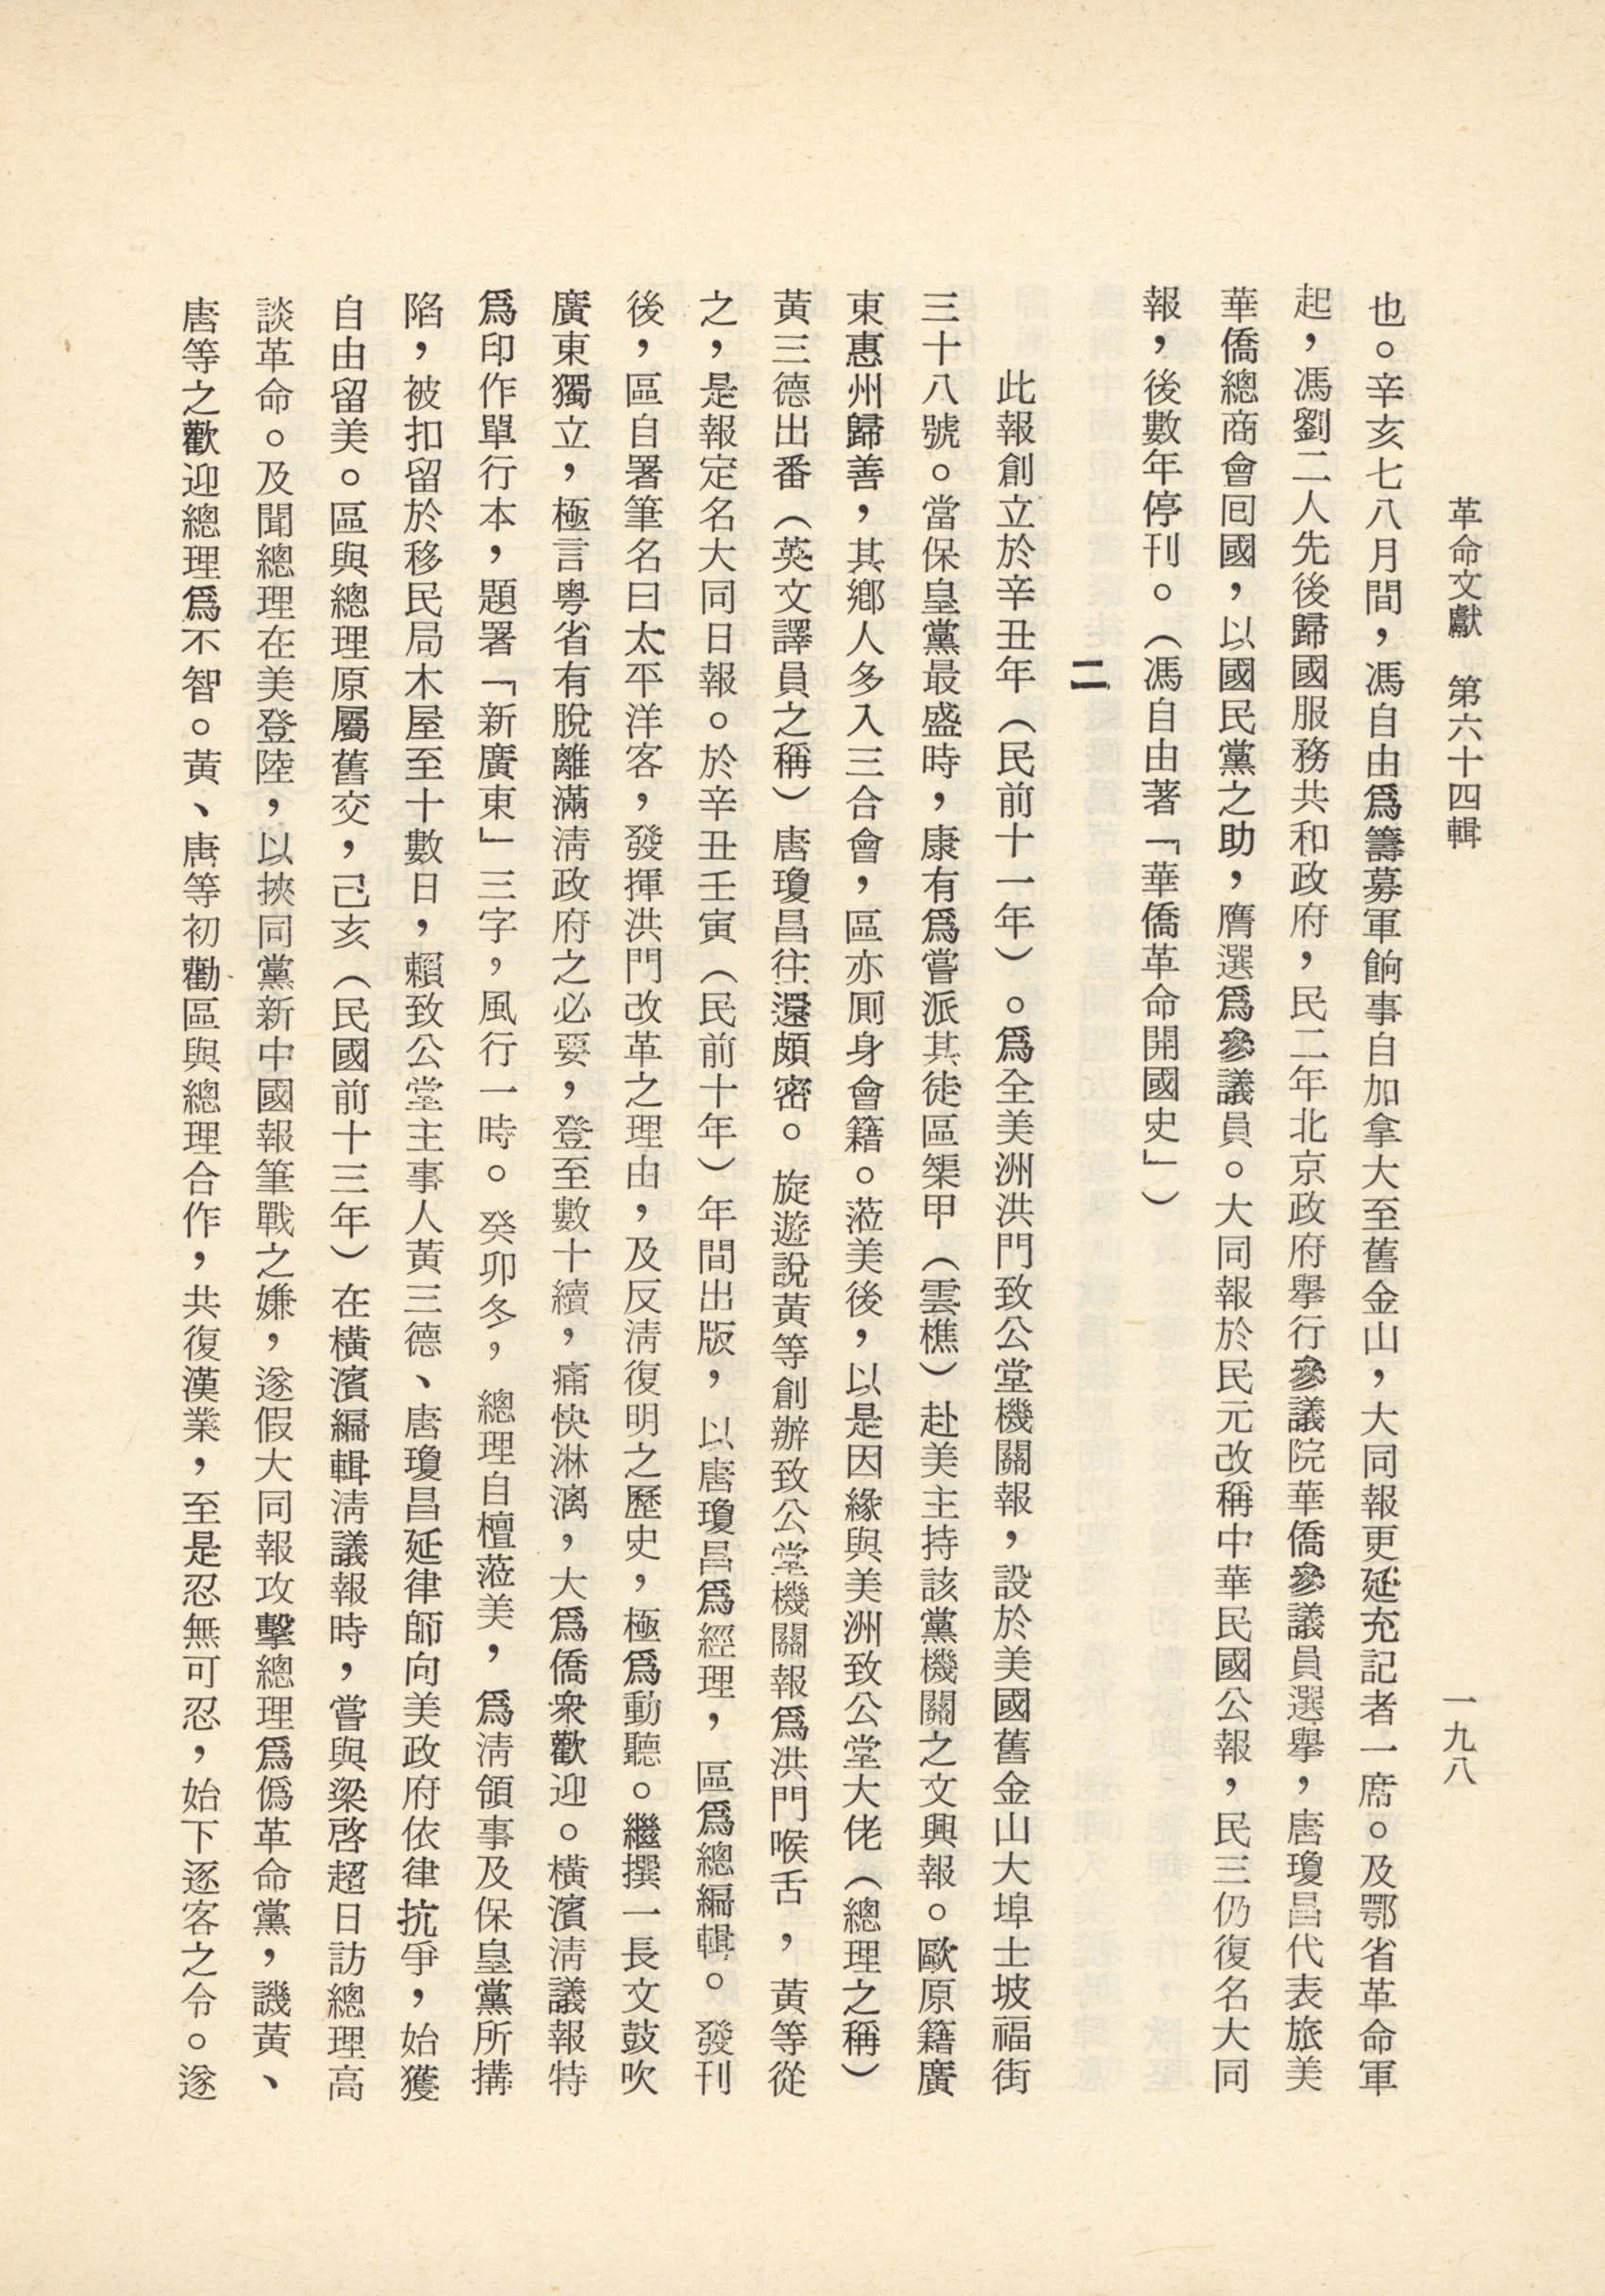 革命文獻　第六十四輯
一九八
也。辛亥七八月間，馮自由爲籌募軍餉事自加拿大至舊金山，大同報更延充記者一席。及鄂省革命軍
起，馮劉二人先後歸國服務共和政府，民二年北京政府舉行參議院華僑參議員選舉，唐瓊昌代表旅美
華僑總商會囘國，以國民黨之助，膺選爲參議員。大同報於民元改稱中華民國公報，民三仍復名大同
報，後數年停刊。（馮自由著「華僑革命開國史」）
二
此報創立於辛丑年（民前十一年）。爲全美洲洪門致公堂機關報，設於美國舊金山大埠士坡福街
三十八號。當保皇黨最盛時，康有爲嘗派其徒區榘甲（雲樵）赴美主持該黨機關之文興報。歐原籍廣
東惠州歸善，其鄕人多入三合會，區亦厠身會籍。蒞美後，以是因緣與美洲致公堂大佬（總理之稱）
黃三德出番（英文譯員之稱）唐瓊昌往還頗密。旋遊說黃等創辦致公堂機關報爲洪門喉舌，黃等從
之，是報定名大同日報。於辛丑壬寅（民前十年）年間出版，以唐瓊昌爲經理，區爲總編輯。發刊
後，區自署筆名曰太平洋客，發揮洪門改革之理由，及反淸復明之歷史，極爲動聽。繼撰一長文鼓吹
廣東獨立，極言粤省有脫離滿淸政府之必要，登至數十續，痛快淋漓，大爲僑衆歡迎。橫濱淸議報特
爲印作單行本，題署「新廣東」三字，風行一時。癸卯冬，總理自檀蒞美，爲淸領事及保皇黨所搆
陷，被扣留於移民局木屋至十數日，賴致公堂主事人黃三德、唐瓊昌延律師向美政府依律抗爭，始獲
自由留美。區與總理原屬舊交，己亥（民國前十三年）在橫濱編輯淸議報時，嘗與梁啓超日訪總理高
談革命。及聞總理在美登陸，以挾同黨新中國報筆戰之嫌，遂假大同報攻擊總理爲僞革命黨，譏黃、
唐等之歡迎總理爲不智。黃、唐等初勸區與總理合作，共復漢業，至是忍無可忍，始下逐客之令。遂